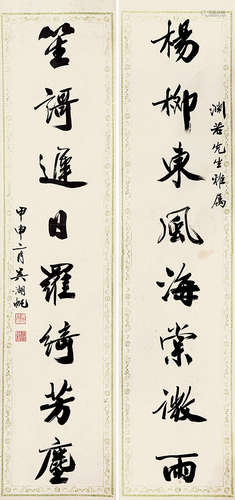 楊柳東風海棠微雨
淵若先生雅屬
笙謌遲日羅綺芳塵
甲申六月吳湖帆